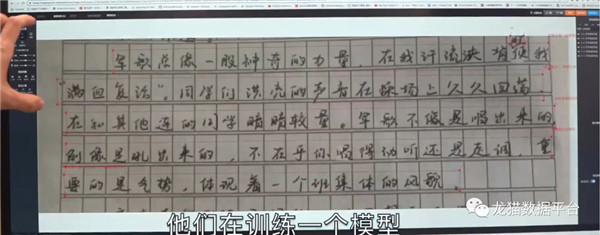 军歌总像一股神奇的力量,在我汗流浃背使我
“满血复活”。同学们洪亮的声音在操场上久久回荡,
在和其他连的同学暗暗较量。军歌不像是唱出来的
到像是吼出来的,不在乎你唱得动听还是走调,重
要的是气势,体现着一个班集体的风貌
他们在训练一个模型
龙猫数据平台